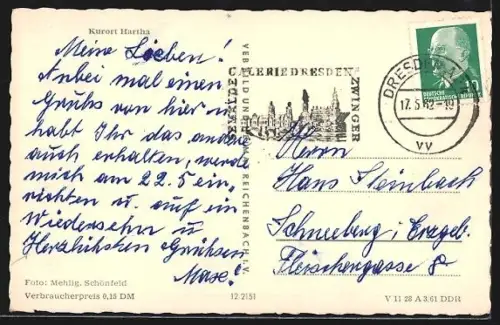 Kurort Hartha
Meine Lieben!
Anbei mal einen
Gruß von hier u.
habt Ihr das andre
auch erhalten, werde
mich am 22.5 ein
richten u. auf ein
Wiedersehn u
Herzlichsten Grüßen
Max!
Foto: Mehlig, Schönfeld
Verbraucherpreis 0,15 DM
12 2151
VEB BILD UND REICHENBACH i. V.
GEMÄLDE
GALERIE DRESDEN
ZWINGER
DRESDEN
17.5.62-19
vv
10
DEUTSCHE
DEMOKRATISCHE REPUBLIK
Herrn
Hans Steinbach
Schneeberg i. Erzgeb.
Fleischergasse 8
V 11 28 A 3.61 DDR